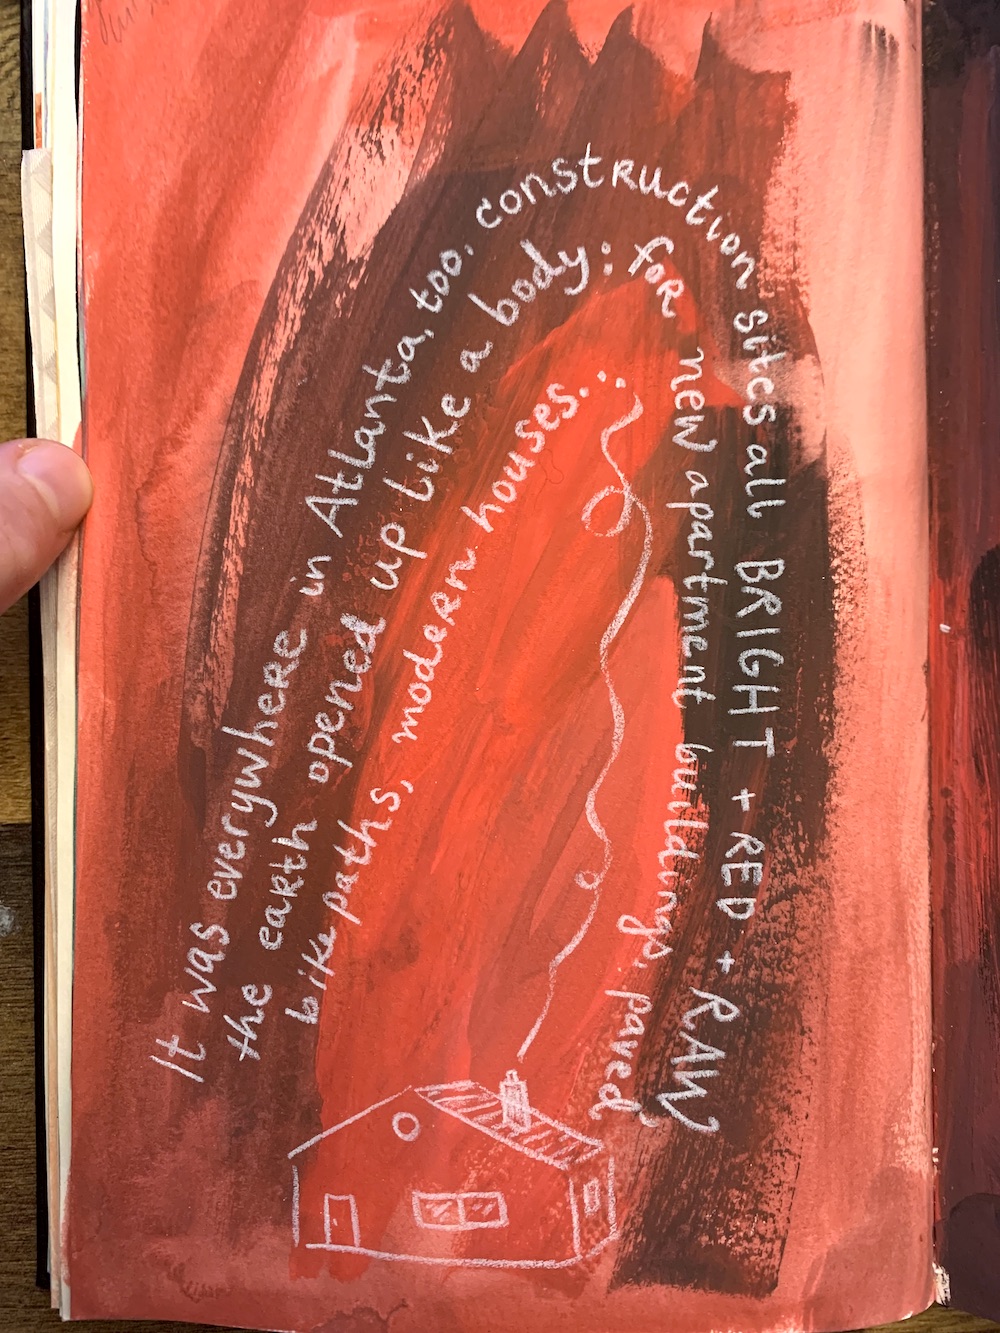 It was everywhere in Atlanta, too. construction sites all BRIGHT + RED + RAW
the earth opened up like a body: for new apartment buildings, paved
bike paths, modern houses...